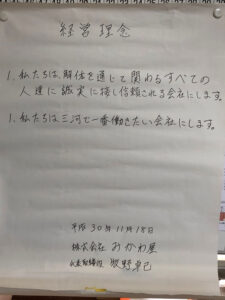 経営理念
1. 私たちは、解体を通じて関わるすべての
人達に誠実に接し信頼される会社にします。
1. 私たちは三河で一番働きたい会社にします。
平成30年11月18日
株式会社 おかわ屋
代表取締役 牧野卓己